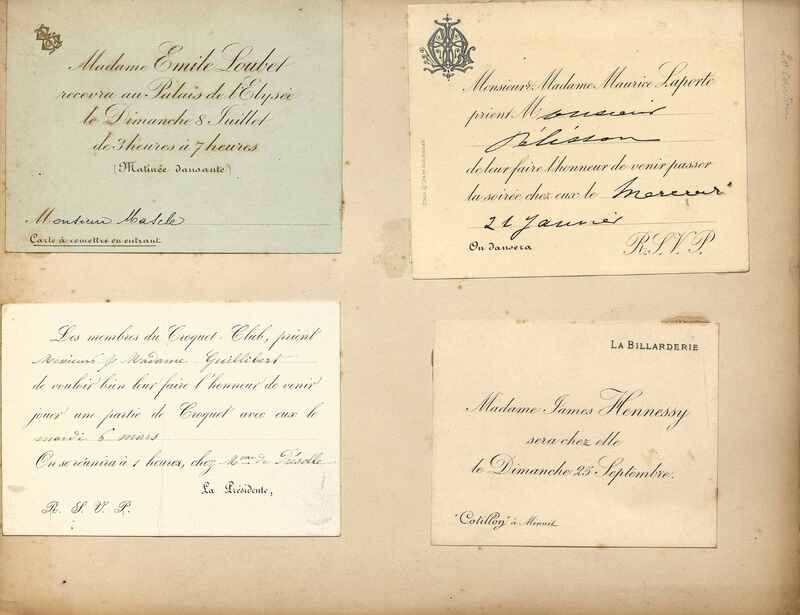 Madame Emile Loubet
recevra au Palais de l'Elysée
le Dimanche 8 Juillet
de 3 heures à 7 heures
(Matinée dansante)
Monsieur
Carte à remettre en entrant.
Monsieur & Madame Maurice Laporte
prient Monsieur
Pélisson
de leur faire l'honneur de venir passer
la soirée chez eux le Mercredi
21 Janvier
On dansera R.S.V.P.
Les membres du Croquet-Club, prient
Monsieur & Madame Guillibert
de vouloir bien leur faire l'honneur de venir
jouer une partie de Croquet avec eux le
mardi 6 mars
On se réunira à 1 heures, chez de
La Présidente,
R. S. V. P.
LA BILLARDERIE
Madame James Hennessy
sera chez elle
le Dimanche 25 Septembre.
"Cotillon" à Minuit